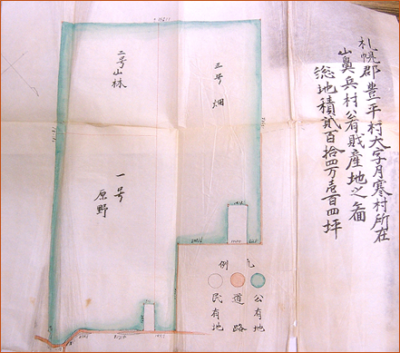 札幌郡豊平村大字月寒村所在
山鼻兵村公有財産地之図
総地積貳百拾四万壱百四坪
三号 畑
二号山林
一号
原野
凡例
公有地
道路
民有地